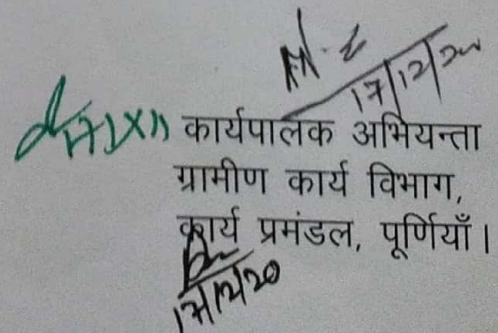 17/12/20
कार्यपालक अभियन्ता
ग्रामीण कार्य विभाग,
कार्य प्रमंडल, पूर्णियाँ।
17/12/20